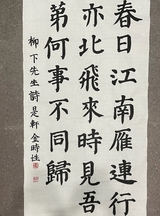 春日江南雁連行
亦北飛來時見吾
第何事不同歸
柳下先生詩 是軒 金時性